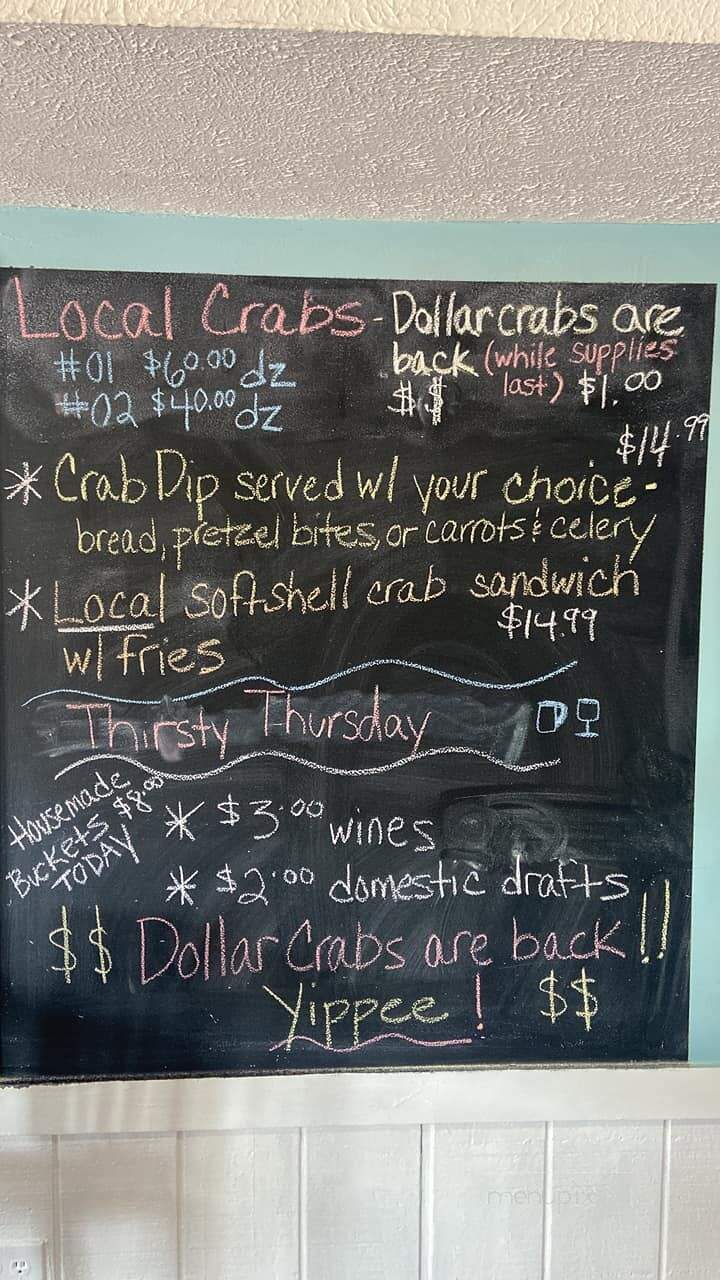 Local Crabs - Dollar crabs are
back (while supplies
last) $1.00
$$
#01 $60.00 dz
#02 $40.00 dz
$14.99
* Crab Dip served w/ your choice-
bread, pretzel bites, or carrots & celery
* Local softshell crab sandwich
$14.99
w/ fries
Thirsty Thursday
Housemade
Buckets $8.00
TODAY
* $3.00 wines
* $2.00 domestic drafts
$$ Dollar Crabs are back!!
Yippee! $$
menupix